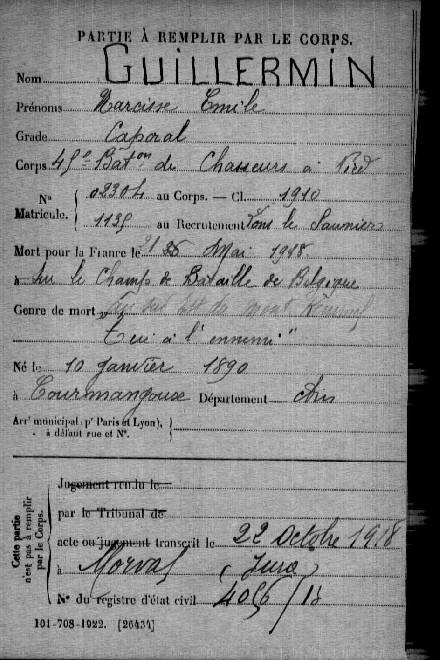 PARTIE À REMPLIR PAR LE CORPS.
Nom GUILLERMIN
Prénoms Narcisse Emile
Grade Caporal
Corps 45e Baton de Chasseurs à Pied
No Matricule. 02304 au Corps. — Cl. 1910
1135 au Recrutement Lons le Saunier
Mort pour la France le 31 Mai 1918
à sur le Champ de Bataille de Belgique
Genre de mort
Tué à l'ennemi"
Né le 10 Janvier 1890
à Courmangoux Département Ain
Arrt municipal (pr Paris et Lyon),
à défaut rue et No.
Cette partie n'est pas à remplir par le Corps.
Jugement rendu le
par le Tribunal de
acte ou jugement transcrit le 22 Octobre 1918
à Morval (Jura)
No du registre d'état civil 4056/13
101-708-1922. [26434]